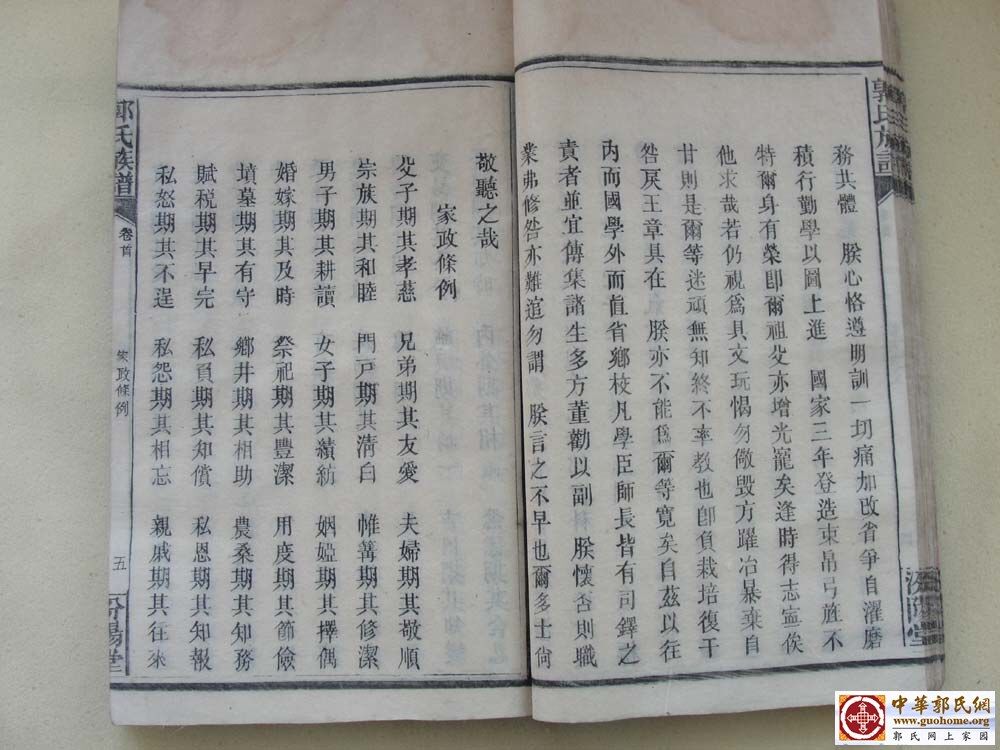 郭氏族譜
務共體 朕心恪遵明訓一切痛加改省爭自濯磨
積行勤學以圖上進 國家三年登造束帛弓旌不
特爾身有榮卽爾祖父亦增光寵矣逢時得志寧俟
他求哉若仍視爲具文玩愒勿儆毀方躍冶暴棄自
甘則是爾等迷頑無知終不率教也卽負栽培復干
咎戾王章具在 朕亦不能爲爾等寬矣自茲以往
內而國學外而直省鄉校凡學臣師長皆有司鐸之
責者並宜傳集諸生多方董勸以副 朕懷否則職
業弗修咎亦難逭勿謂 朕言之不早也爾多士尙
敬聽之哉
家政條例
父子期其孝慈 兄弟期其友愛 夫婦期其敬順
宗族期其和睦 門戸期其淸白 帷薄期其修潔
男子期其耕讀 女子期其績紡 姻婭期其擇偶
婚嫁期其及時 祭祀期其豐潔 用度期其節儉
墳墓期其有守 鄉井期其相助 農桑期其知務
賦税期其早完 私負期其知償 私恩期其知報
私怒期其不逞 私怨期其相忘 親戚期其往來
郭氏族譜 卷首 家政條例 五 汾陽堂
中華郭氏網
www.guohome.org
郭氏網上家園